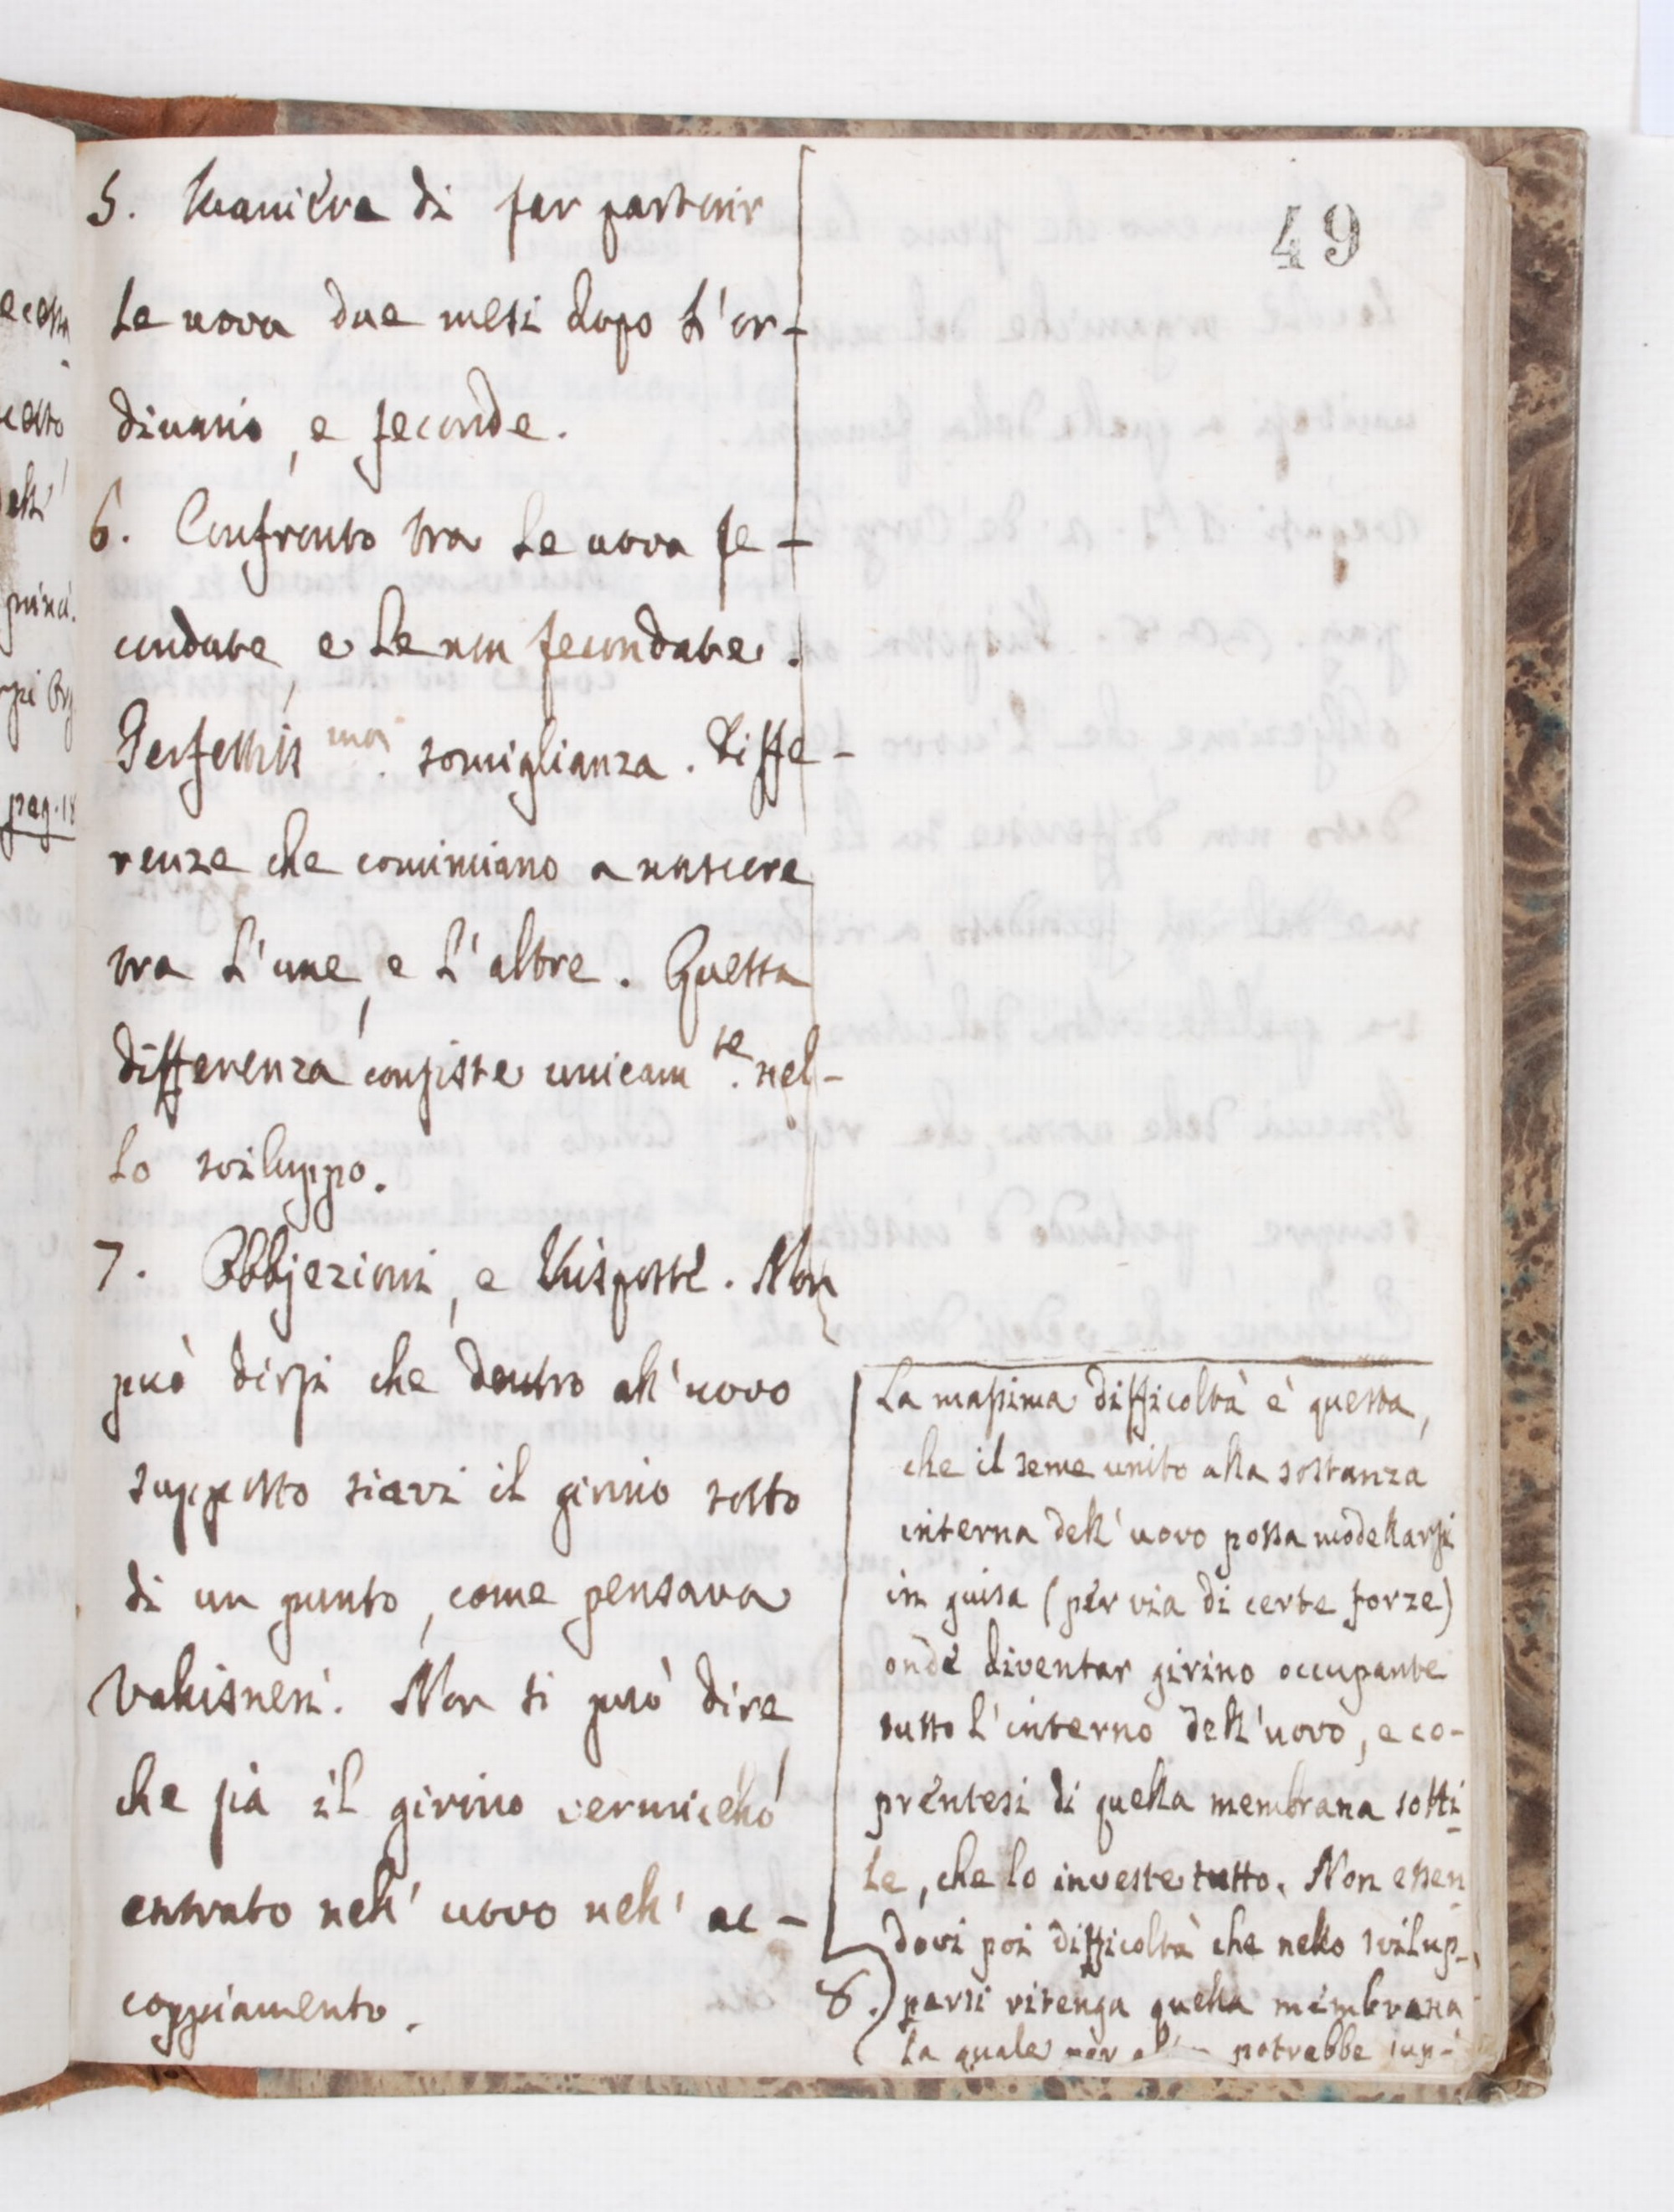 49
5. Maniera di far partorir
le uova due mesi dopo l'or-
dinario, e feconde.
6. Confronto tra le uova fe-
condate, e le non fecondate.
Perfettis ma. somiglianza. Diffe-
renze che cominciano a nascere
tra l'une, e l'altre. Questa
differenza consiste unicam te. nel-
lo sviluppo.
7. Obbjezioni, e Risposte. Non
può dirsi che dentro all'uovo
supposto siavi il girino sotto
di un punto, come pensava
Vallisneri. Non si può dire
che sia il girino vermicello
entrato nell'uovo nell'ac-
coppiamento.
La massima difficoltà è questa,
che il seme unito alla sostanza
interna dell'uovo possa modellarsi
in guisa (per via di certe forze)
onde diventar girino occupante
tutto l'interno dell'uovo, e co-
prentesi di quella membrana sotti-
le, che lo investe tutto. Non essen
dovi poi difficoltà che nello svilup-
8.) parsi ritenga quella membrana
la quale per potrebbe sup-
ecessa
pag. 18